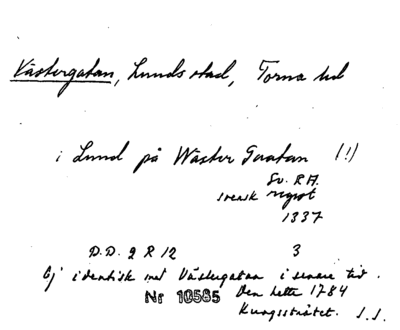 Västergatan, Lunds stad, Torna hd
i Lund på Wäster Gaatan (!)
Sv. R.A.
svensk regest
1337
D.D. 2 R 12 3
Ej identisk med Västergatan i senare tid.
Den hette 1784
Nr 10585
Kungssträtet. S.S.